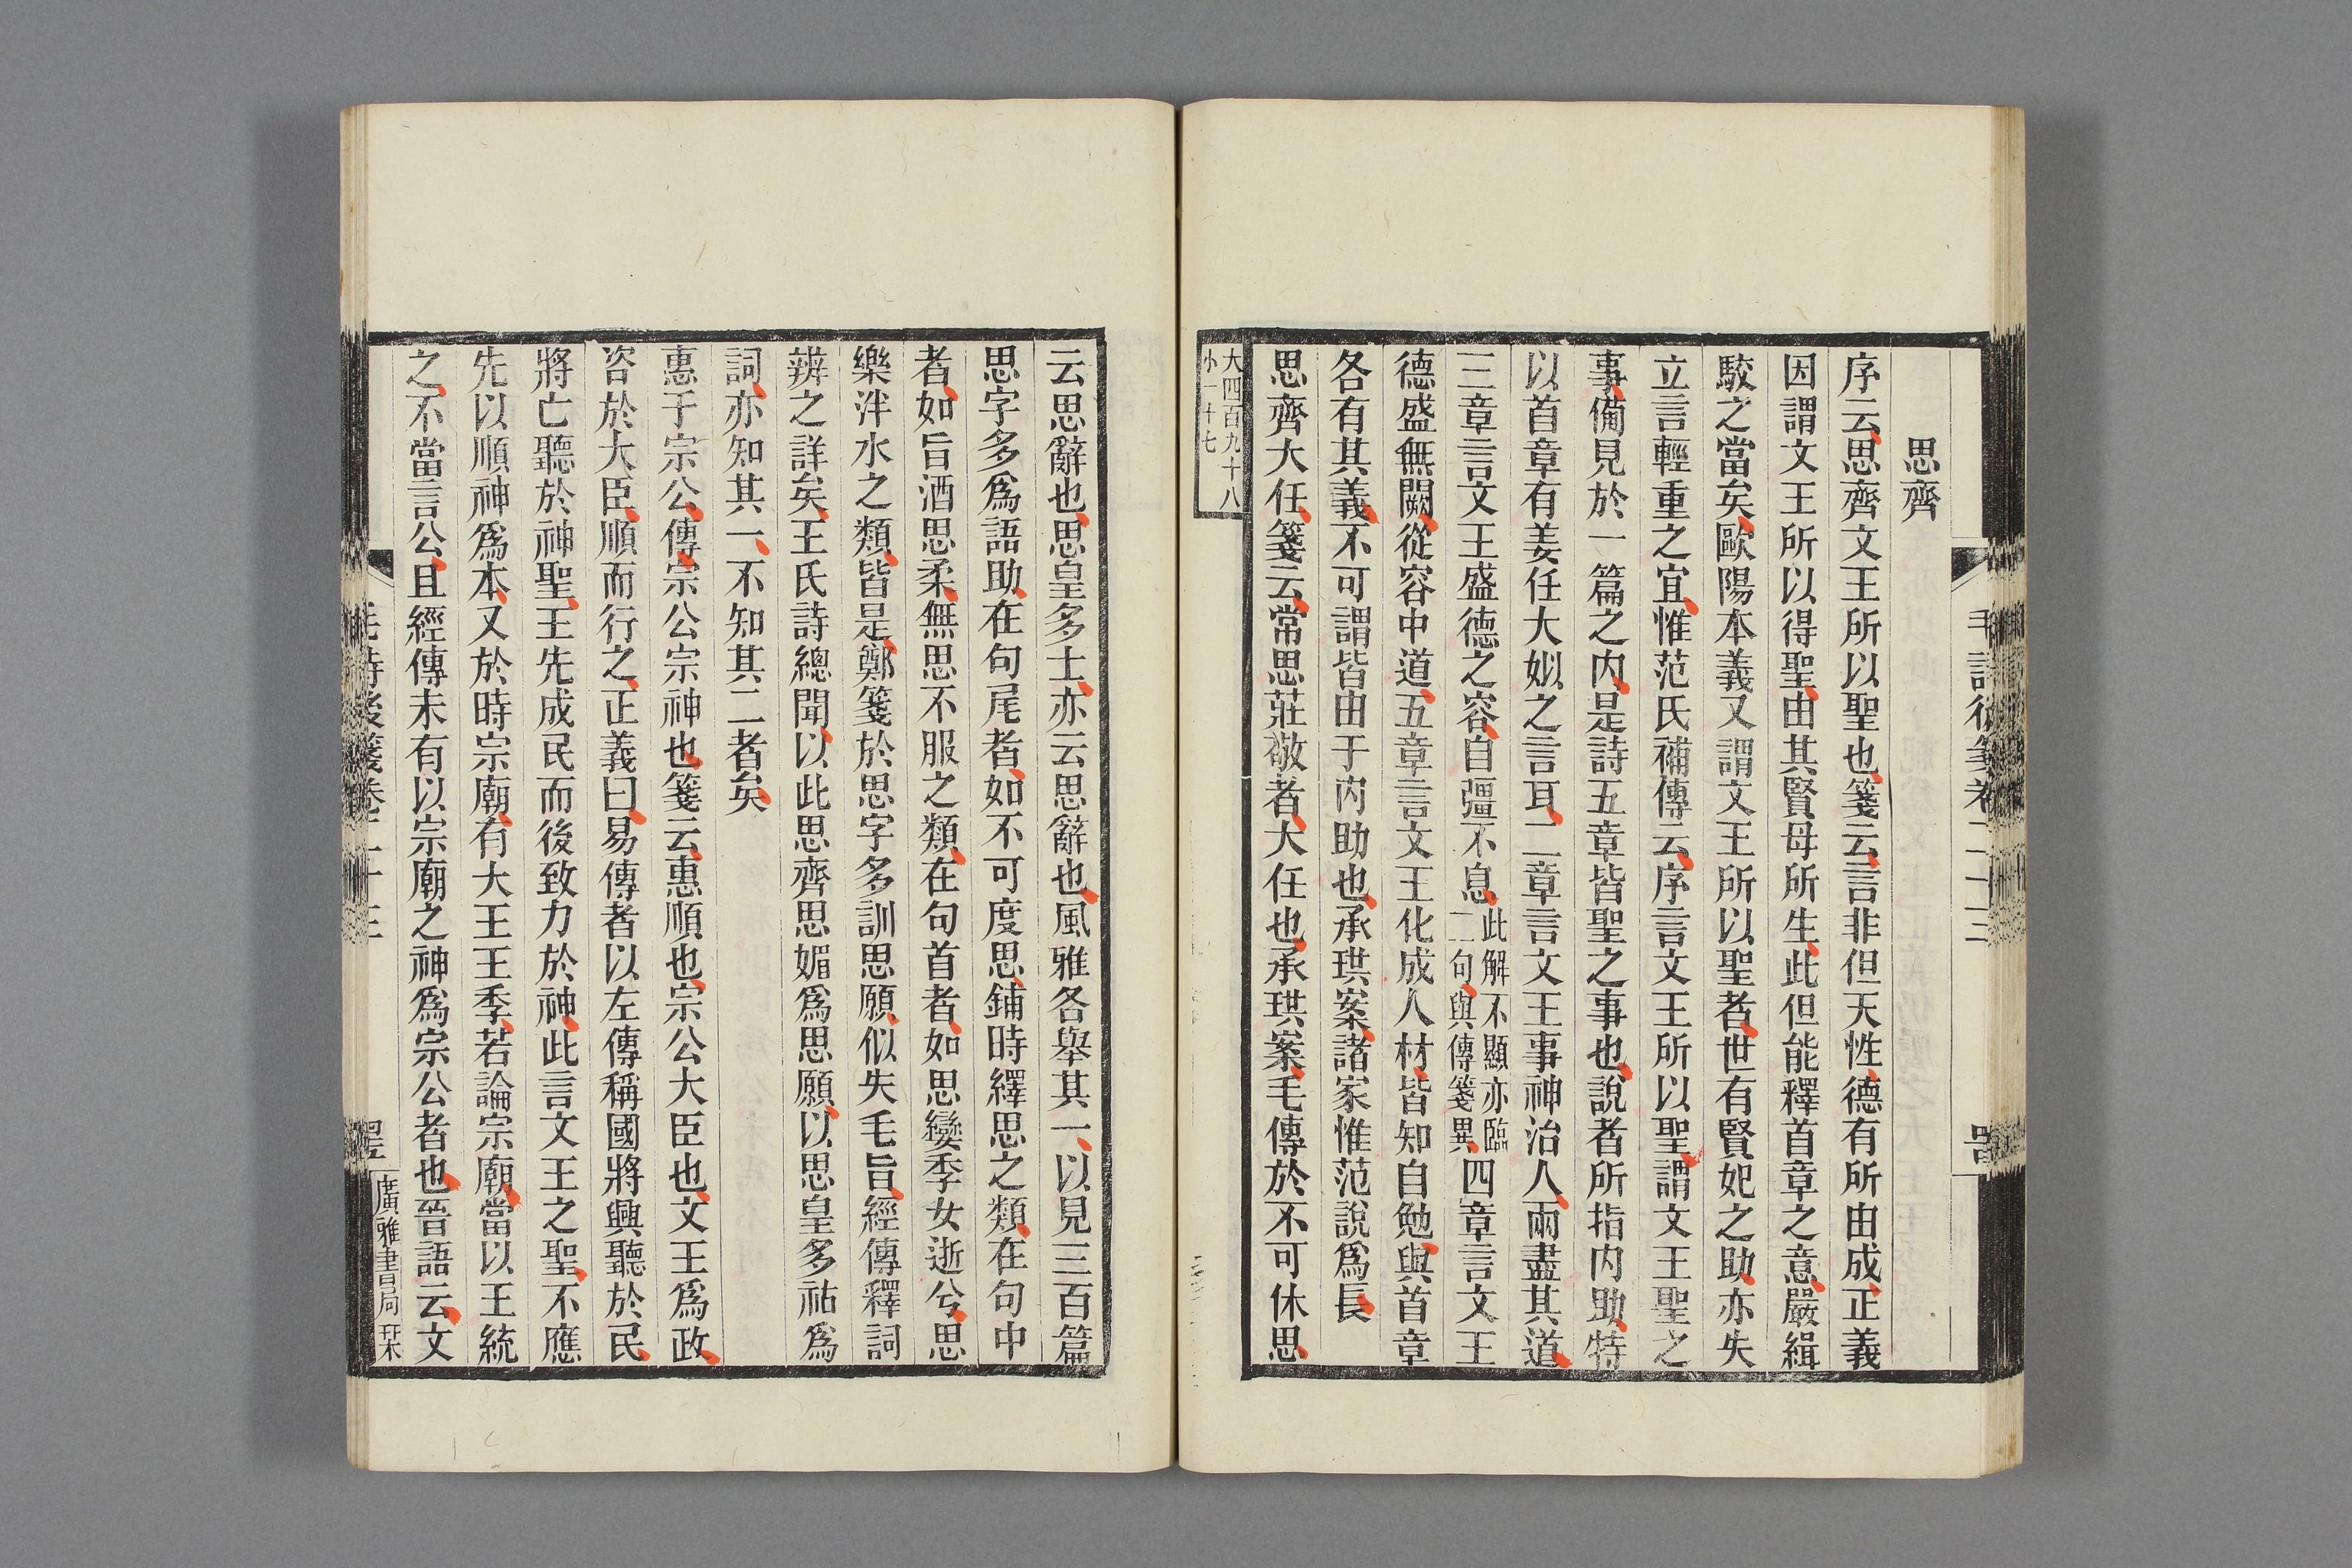 思齊
序云思齊文王所以聖也箋云言非但天性德有所由成正義
因謂文王所以得聖由其賢母所生此但能釋首章之意嚴緝
駮之當矣歐陽本義又謂文王所以聖者世有賢妃之助亦失
立言輕重之宜惟范氏補傳云序言文王所以聖謂文王聖之
事備見於一篇之内是詩五章皆聖之事也說者所指内助特
以首章有姜任大姒之言耳二章言文王事神治人兩盡其道
三章言文王盛德之容自彊不息此解不顯亦臨二句與傳箋異四章言文王
德盛無闕從容中道五章言文王化成人材皆知自勉與首章
各有其義不可謂皆由于内助也承珙案諸家惟范說爲長
思齊大任箋云常思莊敬者大任也承珙案毛傳於不可休思
大四百九十八
小一十七
毛詩後箋卷二十三
云思辭也思皇多士亦云思辭也風雅各舉其一以見三百篇
思字多爲語助在句尾者如不可度思鋪時繹思之類在句中
者如旨酒思柔無思不服之類在句首者如思孌季女逝兮思
樂泮水之類皆是鄭箋於思字多訓思願似失毛旨經傳釋詞
辨之詳矣王氏詩總聞以此思齊思媚爲思願以思皇多祜爲
詞亦知其一不知其二者矣
惠于宗公傳宗公宗神也箋云惠順也宗公大臣也文王爲政
咨於大臣順而行之正義曰易傳者以左傳稱國將興聽於民
將亡聽於神聖王先成民而後致力於神此言文王之聖不應
先以順神爲本又於時宗廟有大王王季若論宗廟當以王統
之不當言公且經傳未有以宗廟之神爲宗公者也晉語云文
毛詩後箋卷二十三
廣雅書局栞